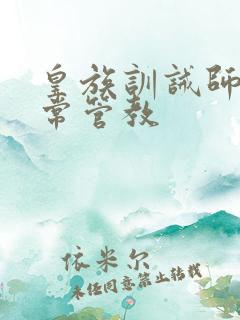 皇族訓誡師
常管教
依米尔
未经同意禁止转载